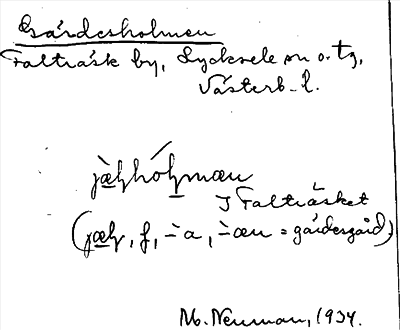 Gärdesholmen
Falträsk by, Lycksele sn o. tg,
Västerb. l.
jæ̀ļhóļmæn
I Falträsket
(jæļ, f, -̀a, -̀æn = gärdesgård)
M. Neuman, 1934.